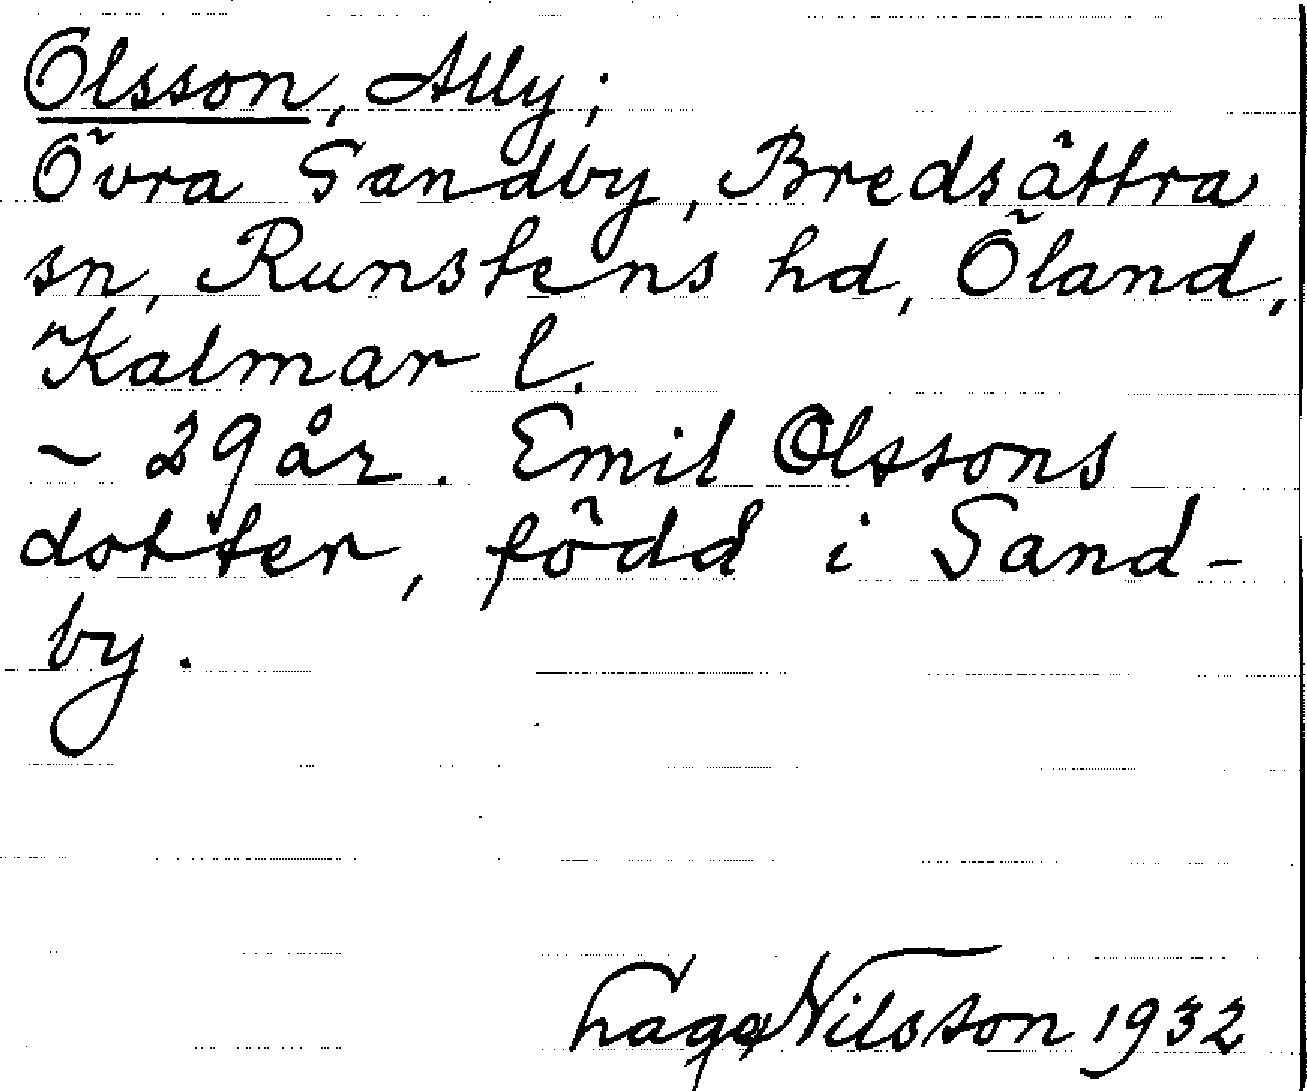 Olsson, Ally;
Övra Sandby, Bredsättra
sn, Runstens hd, Öland,
Kalmar l.
- 29 år. Emil Olssons
dotter, född i Sand-
by.
Nilsson 1932